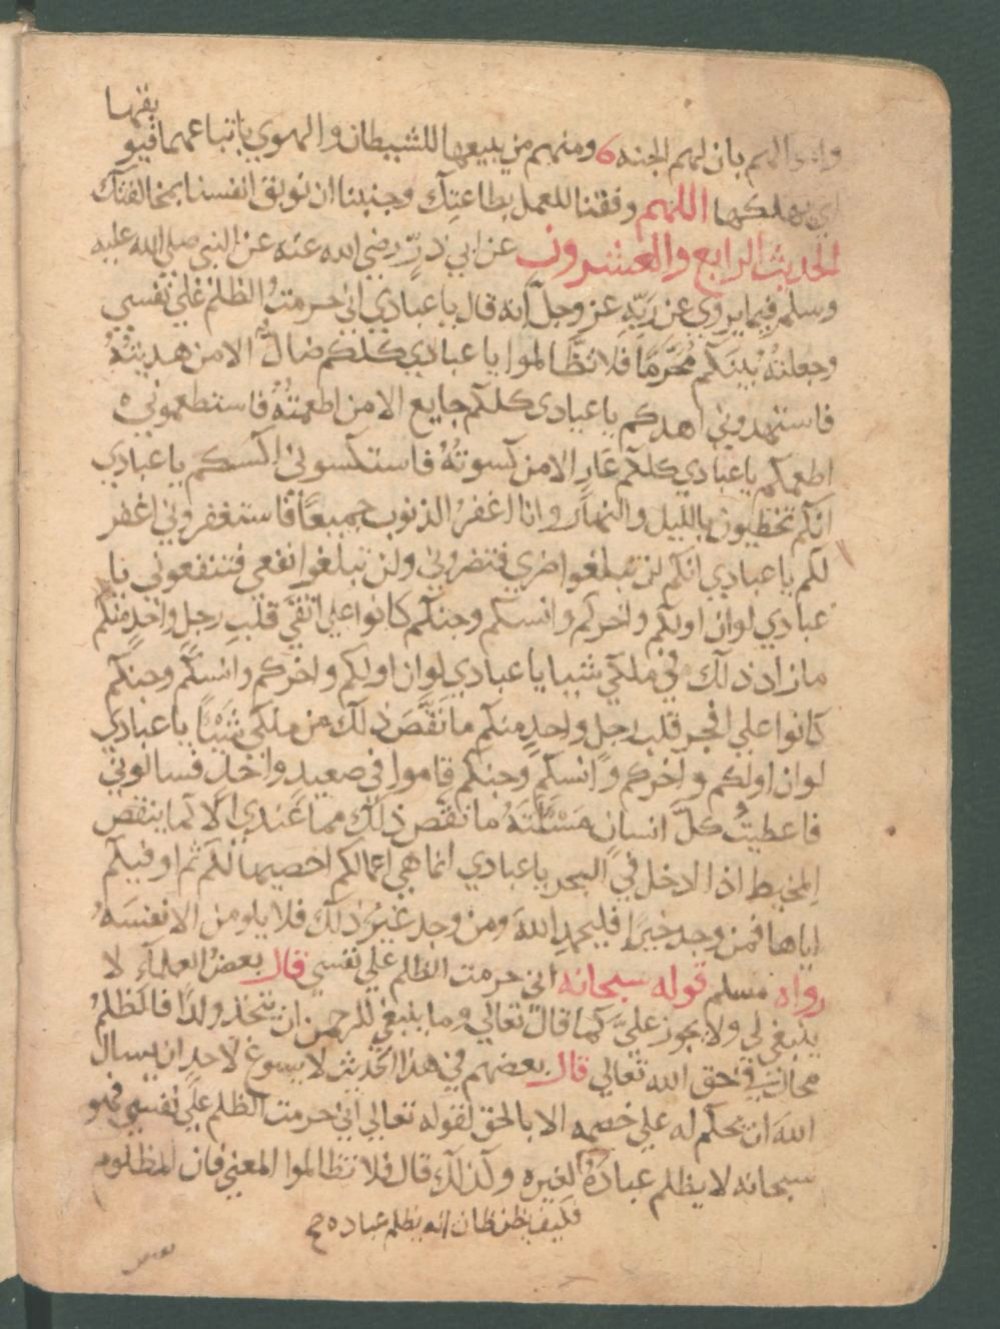 بقها
واموالهم بان لهم الجنه ٥ ومنهم من يبيعها للشيطان والهوي باتباعهما فيو
اي يهلكها اللهم وفقنا للعمل بطاعتك وجنبنا ان نوبق انفسنا بمخالفتك
الحديث الرابع والعشرون عن ابي ذرّ رضي الله عنه عن النبي صلي الله عليه
وسلم فيما يروي عن رَبِّهِ عز وجل انه قال يا عبادي اني حرمتُ الظلم علي نفسي
وجعلتهُ بينَكم مُحَرَّمًا فلا تظالموا يا عبادي كلكم ضالٌّ الا من هديتُهُ
فاستهدوني اهدكم يا عبادي كلكم جايع الا من اطعمتُهُ فاستطعموني ٥
اطعمكم يا عبادي كلكم عَارٍ الا من كسوتُهُ فاستكسوني اكسكم يا عبادي
انكم تخطيون بالليل والنهار وانا اغفرُ الذنوب جميعًا فاستغفروني اغفر
لكم يا عبادي انكم لن تبلغوا ضري فتضروني ولن تبلغوا نفعي فتنفعوني يا
عبادي لو ان اولكم واخركم وانسكم وجنكم كانوا علي اتقي قلبِ رجلٍ واحدٍ منكم
ما زاد ذلك في ملكي شيا يا عبادي لو ان اولكم واخركم وانسكم وجنكم
كانوا علي افجر قلب رجلٍ واحدٍ منكم ما نَقَصَ ذلك من ملكي شَيْئًا يا عبادي
لو ان اولكم واخركم وانسكم وجنكم قاموا في صعيدٍ واحدٍ فسالوني
فاعطيتُ كلَّ انسانٍ مَسْئَلَتَهُ ما نقص ذلك مما عندي الا كما ينقص
المخيط اذا ادخل في البحر يا عبادي انما هي اعمالكم احصيها لكم ثم اوفيكم
اياها فمن وجد خيرًا فليحمدِ اللهَ ومن وجد غيرَ ذلك فلا يلومن الا نفسَهُ
رواه مسلم قوله سبحانه اني حرمت الظلم علي نفسي قال بعضُ العلمآءِ لا
ينبغي لي ولا يجوز عليَّ كما قال تعالي وما ينبغي للرحمن ان يتخذ ولدًا فالظلمُ
محالٌ في حق الله تعالي قال بعضهم في هذا الحديث لا يسوغ لاحدٍ ان يسال
اللهَ ان يحكم له علي خصمه الا بالحق لقوله تعالي اني حرمت الظلم علي نفسي فهو
سبحانه لا يظلم عبادَهُ لغيره وكذلك قال فلا تظالموا المعني فان المظلوم
فكيف يظن ظان انه يظلم عباده